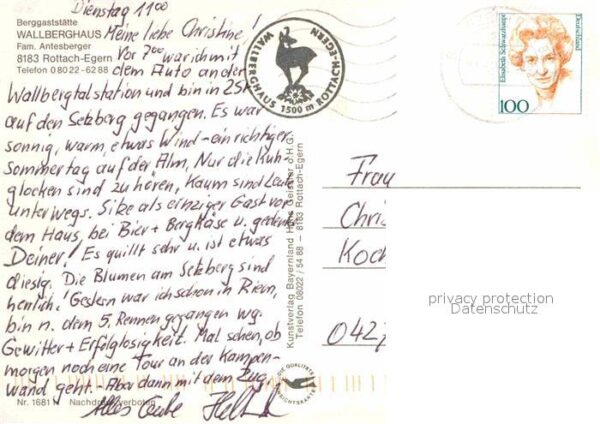 Dienstag 11⁰⁰
Berggaststätte
WALLBERGHAUS
Fam. Antesberger
8183 Rottach-Egern
Telefon 08022-6288
Meine liebe Christine!
Vor 7⁰⁰ war ich mit
dem Auto an der
Wallbergtalstation und bin in 2Std
auf den Setzberg gegangen. Es war
sonnig, warm, etwas Wind - ein richtiger
Sommertag auf der Alm, Nur die Kuh-
glocken sind zu hören, Kaum sind Leute
unterwegs. Sitze als einziger Gast vor
dem Haus, bei Bier + Bergkäse u. gedenke
Deiner! Es quillt sehr u. ist etwas
diesig. Die Blumen am Setzberg sind
herrlich! Gestern war ich schon in Riem,
bin n. dem 5. Rennen gegangen wg.
Gewitter + Erfolglosigkeit. Mal sehen, ob
morgen noch eine Tour an der Kampen-
wand geht. - Aber dann mit dem Zug.
Alles Liebe
Nr. 1681 Nachdruck verboten
WALLBERGHAUS 1500 m ROTTACH-EGERN
Kunstverlag Bayernland Hans Geissler o.H.G.
Telefon 08022 / 54 88 – 8183 Rottach-Egern
DIE QUALITÄTS
Elisabeth Schwarzhaupt
Deutschland
100
Frau
Chri
Koch
042
privacy protection
Datenschutz